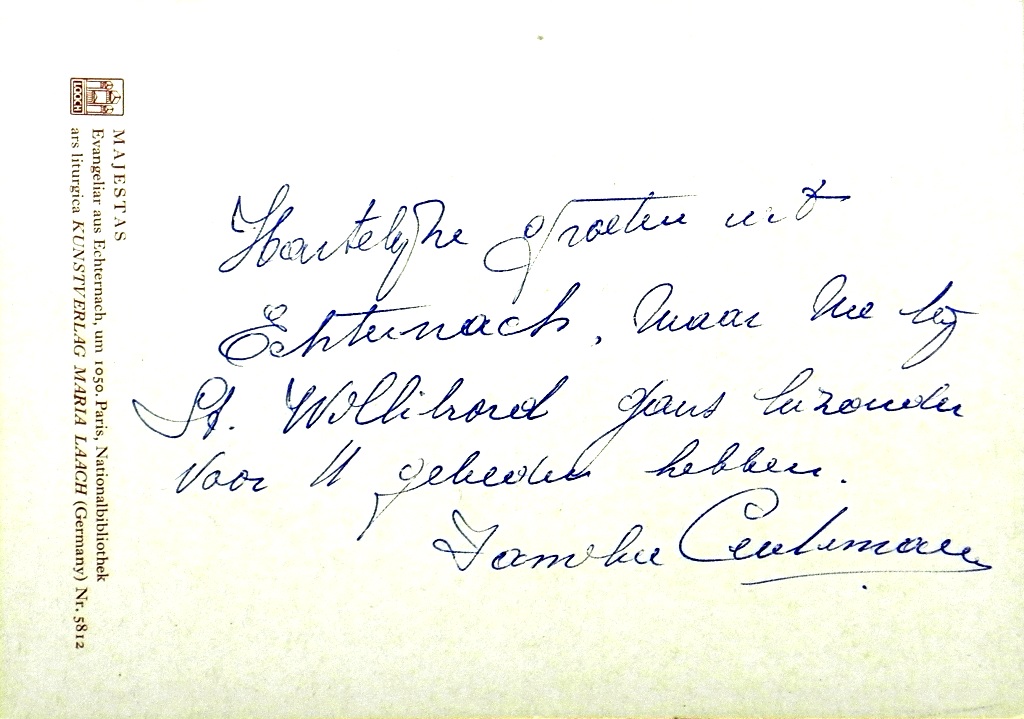 Hartelijke groeten uit
Echternach, waar we bij
St. Willibrord gans bizonder
voor U gebeden hebben.
Familie
MAJESTAS
Evangeliar aus Echternach, um 1050. Paris, Nationalbibliothek
ars liturgica KUNSTVERLAG MARIA LAACH (Germany) Nr. 5812